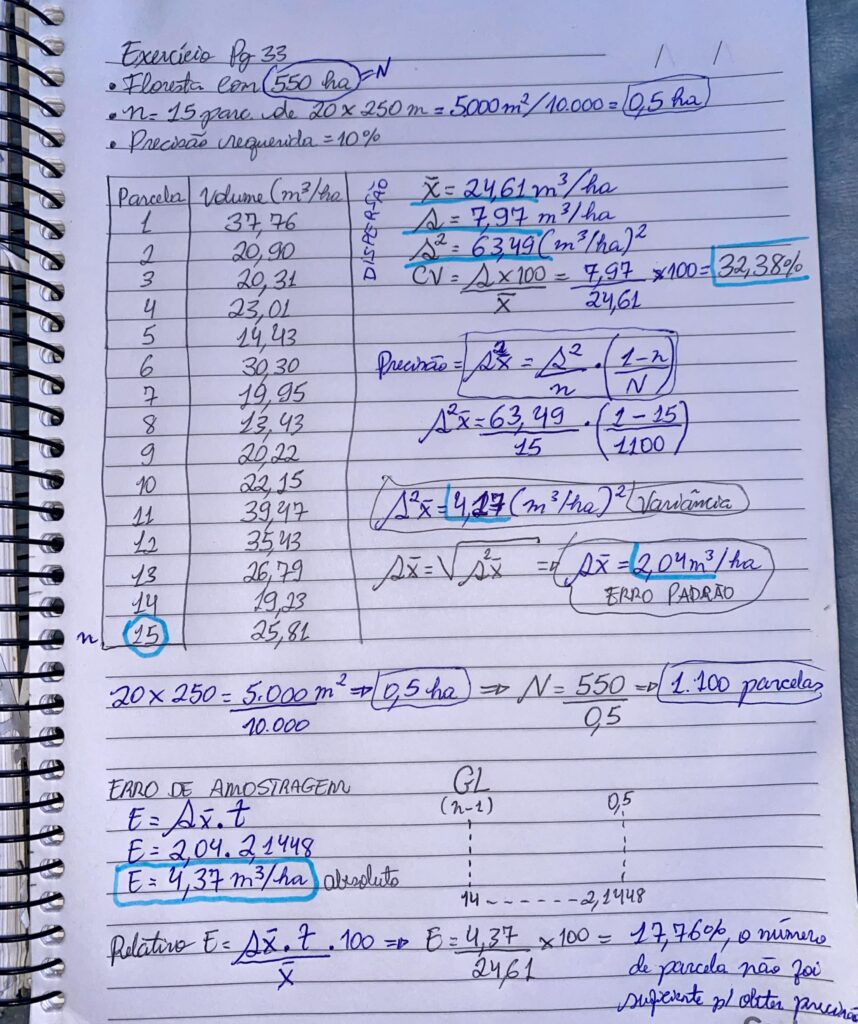 Exercício Pg 33
• Floresta com 550 ha = N
• n = 15 parc. de 20 x 250 m = 5000 m²/10.000 = 0,5 ha
• Precisão requerida = 10%
Parcela Volume (m³/ha
1 37,76
2 20,90
3 20,31
4 23,01
5 14,43
6 30,30
7 19,95
8 13,43
9 20,22
10 22,15
11 39,47
12 35,43
13 26,79
14 19,23
n 15 25,81
DISPERSÃO
x̄ = 24,61 m³/ha
s = 7,97 m³/ha
s² = 63,49 (m³/ha)²
CV = s x 100 / x̄ = 7,97 / 24,61 x 100 = 32,38%
Precisão = s²x̄ = s²/n . (1-n/N)
s²x̄ = 63,49/15 . (1-15/1100)
s²x̄ = 4,17 (m³/ha)² Variância
sx̄ = √s²x̄ ⇒ sx̄ = 2,04 m³/ha
ERRO PADRÃO
20 x 250 = 5.000 m² / 10.000 ⇒ 0,5 ha ⇒ N = 550 / 0,5 ⇒ 1.100 parcelas
ERRO DE AMOSTRAGEM
E = sx̄ . t
E = 2,04 . 2,1448
E = 4,37 m³/ha absoluto
GL
(n-1) 0,5
14 ------ 2,1448
Relativo E = sx̄ . t / x̄ . 100 ⇒ E = 4,37 / 24,61 x 100 = 17,76%, o número
de parcela não foi
suficiente p/ obter precisão